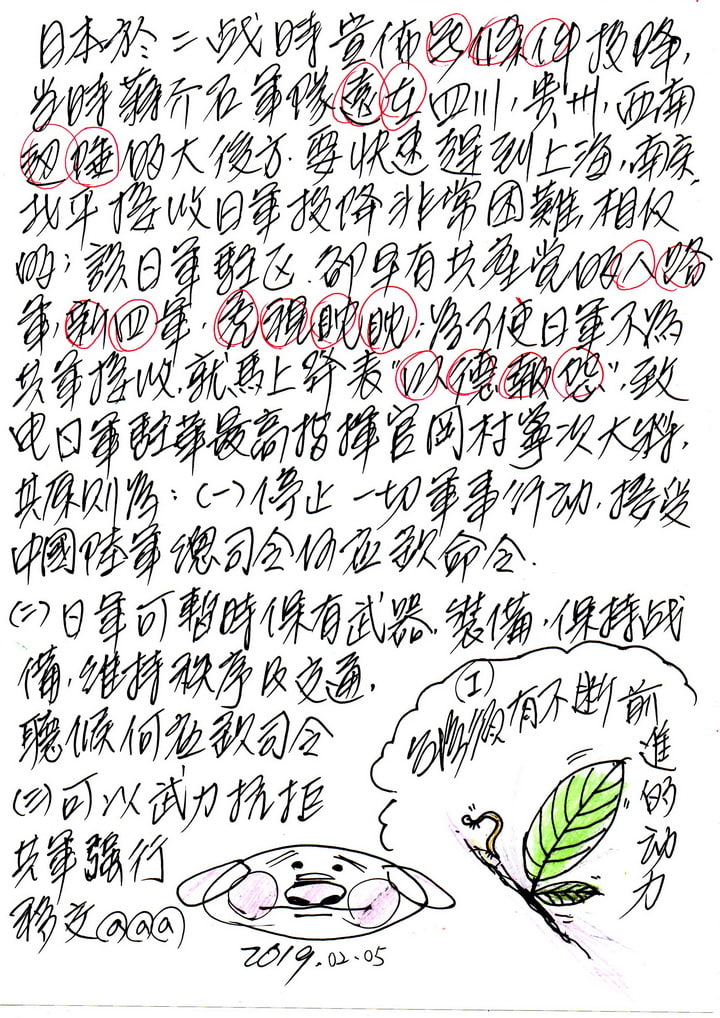 日本於二战時宣佈無條件投降,
当時蔣介石軍隊遠在四川,貴州,西南
的大後方.要快速趕到上海,南京,
北平接收日軍投降非常困難,相反
的;該日軍駐区.卻早有共產党的八路
軍,新四軍,虎視眈眈;為了使日軍不為
共軍接收,就馬上發表"以德報怨",致
电日軍駐華最高指揮官岡村寧次大將,
其原則為:(一)停止一切軍事行动,接受
中國陸軍總司令何应欽命令.
(二)日軍可暫時保有武器,裝備,保持战
備,維持秩序及交通,
聽候何应欽司令
(三)可以武力抗拒
共軍强行
移交
I
有不断前進的动力
2019.02.05